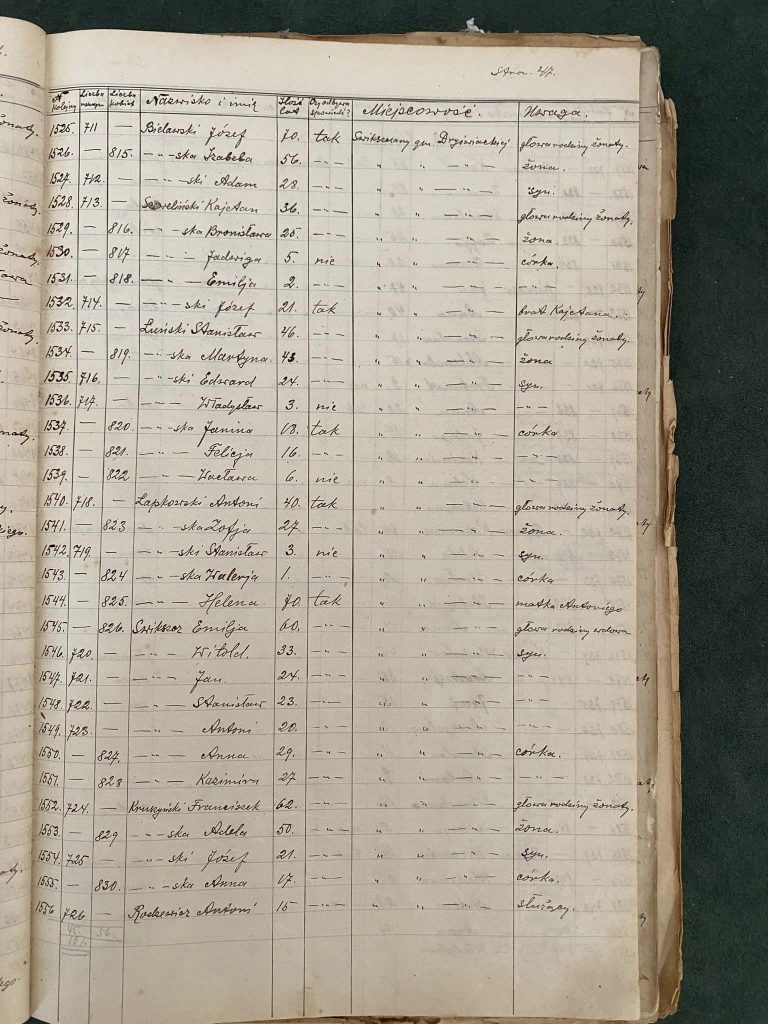 Stron. 47.
№ kolejny Liczba mężczyzn Liczba kobiet Nazwisko i imię Ilość lat Czy odbywa spowiedź? Miejscowość. Uwaga.
1525. 711 — Bielawski Józef 70. tak gm. Dryświackiej głowa rodziny żonaty.
1526. — 815. — „ —ska Izabela 56. — „ — „ „ — „ — żona.
1527. 712. — — „ —ski Adam 28. — „ — „ „ — „ — syn.
1528. 713. — Kajetan 36. — „ — „ „ — „ — głowa rodziny żonaty.
1529. — 816. — „ —ska Bronisława 25. — „ — „ „ — „ — żona.
1530. — 817. — „ — Jadwiga 5. nie „ „ — „ — córka.
1531. — 818. — „ — Emilja 2. — „ — „ „ — „ — — „ —
1532. 714. — — „ —ski Józef 21. tak „ „ — „ — brat Kajetana.
1533. 715. — Łuński Stanisław 46. — „ — „ „ — „ — głowa rodziny żonaty.
1534. — 819. — „ —ska Martyna 43. — „ — „ „ — „ — żona
1535. 716. — — „ —ski Edward 24. — „ — „ „ — „ — syn.
1536. 717. — — „ — Władysław 3. nie „ „ — „ — — „ —
1537. — 820. — „ —ska Janina 18. tak „ „ — „ — córka
1538. — 821. — „ — Felicja 16. — „ — „ „ — „ — — „ —
1539. — 822 — „ — Wacława 6. nie „ „ — „ — — „ —
1540. 718. — Łapkowski Antoni 40. tak „ „ — „ — głowa rodziny żonaty.
1541. — 823 — „ —ska Zofja 27. — „ — „ „ — „ — żona.
1542. 719. — — „ —ski Stanisław 3. nie „ „ — „ — syn.
1543. — 824 — „ —ska Walerja 1. — „ — „ „ — „ — córka
1544. — 825. — „ — Helena 70. tak „ „ — „ — matka Antoniego
1545. — 826. Swikszcz Emilja 60. — „ — „ „ — „ — głowa rodziny wdowa
1546. 720. — — „ — Witold. 33. — „ — „ „ — „ — syn.
1547. 721. — — „ — Jan. 24. — „ — „ „ — „ — — „ —
1548. 722. — — „ — Stanisław 23. — „ — „ „ — „ — — „ —
1549. 723. — — „ — Antoni 20. — „ — „ „ — „ — — „ —
1550. — 827. — „ — Anna 29. — „ — „ „ — „ — córka.
1551. — 828 — „ — Kazimira 27 — „ — „ „ — „ — — „ —
1552. 724. — Kruszyński Franciszek 62. — „ — „ „ — „ — głowa rodziny żonaty.
1553. — 829 — „ —ska Adela 50. — „ — „ „ — „ — żona.
1554. 725 — — „ —ski Józef 21. — „ — „ „ — „ — syn.
1555. — 830. — „ —ska Anna 17. — „ — „ „ — „ — córka.
1556 726 — Rodziewicz Antoni 15 — „ — „ „ — „ — służący.